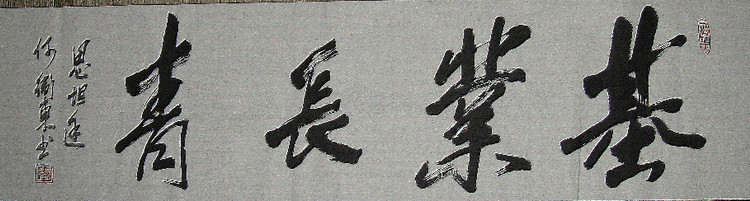 基業長青
思坦廷
何衛東书